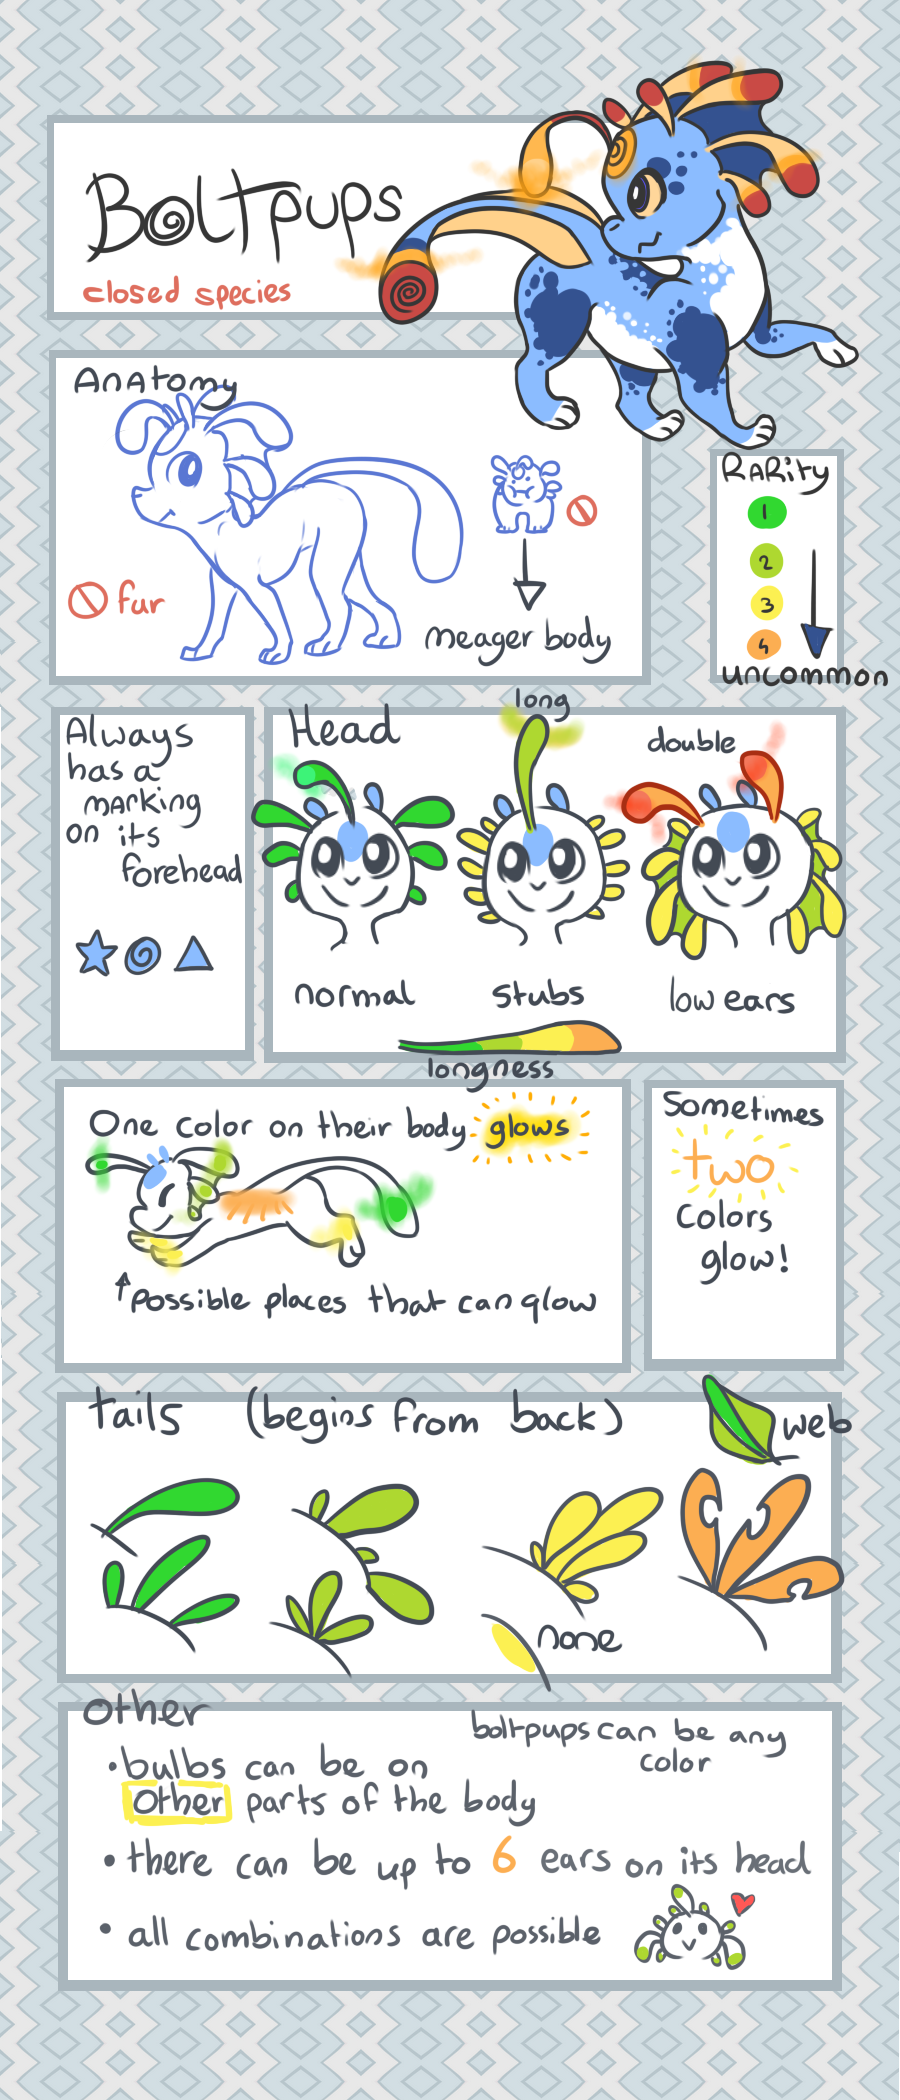 Boltpups
closed species
Anatomy
fur
meager body
Rarity
1
2
3
4
uncommon
Always
has a
marking
on its
forehead
Head
long
double
normal
stubs
low ears
longness
One color on their body glows
Possible places that can glow
Sometimes
two
Colors
glow!
tails (begins from back)
web
none
other
boltpups can be any
color
•bulbs can be on
other parts of the body
• there can be up to 6 ears on its head
• all combinations are possible